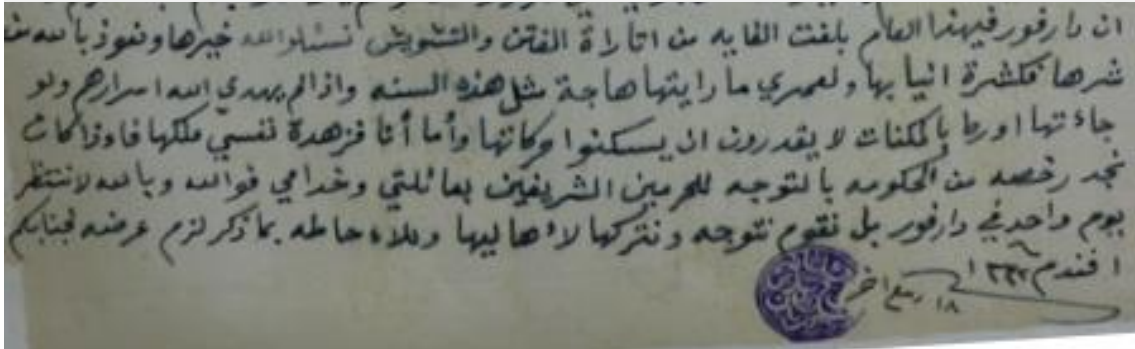 ان دارفور فيهذا العام بلغت الغايه من اثارة الفتن والتشويش نسئلو الله خيرها ونعوذ بالله من
شرها مكشرة انيابها ولعمري ما رايتها هاجة مثل هذه السنه واذا لم يهدي الله اسرارهم ولو
جاءتها اوربا بالمكنات لا يقدرون ان يسكنوا حركاتها وأما أنا فزهدة نفسي ملكها فاوذا كانت
نجد رخصه من الحكومه بالتوجه للحرمين الشريفين بعائلتي وخدامي فوالله وبالله لا ننتظر
يوم واحد في دارفور بل نقوم نتوجه ونتركها لاهاليها وللاحاطه بما ذكر لزم عرضه لجنابكم
افندم
١٨ ربيع اخر